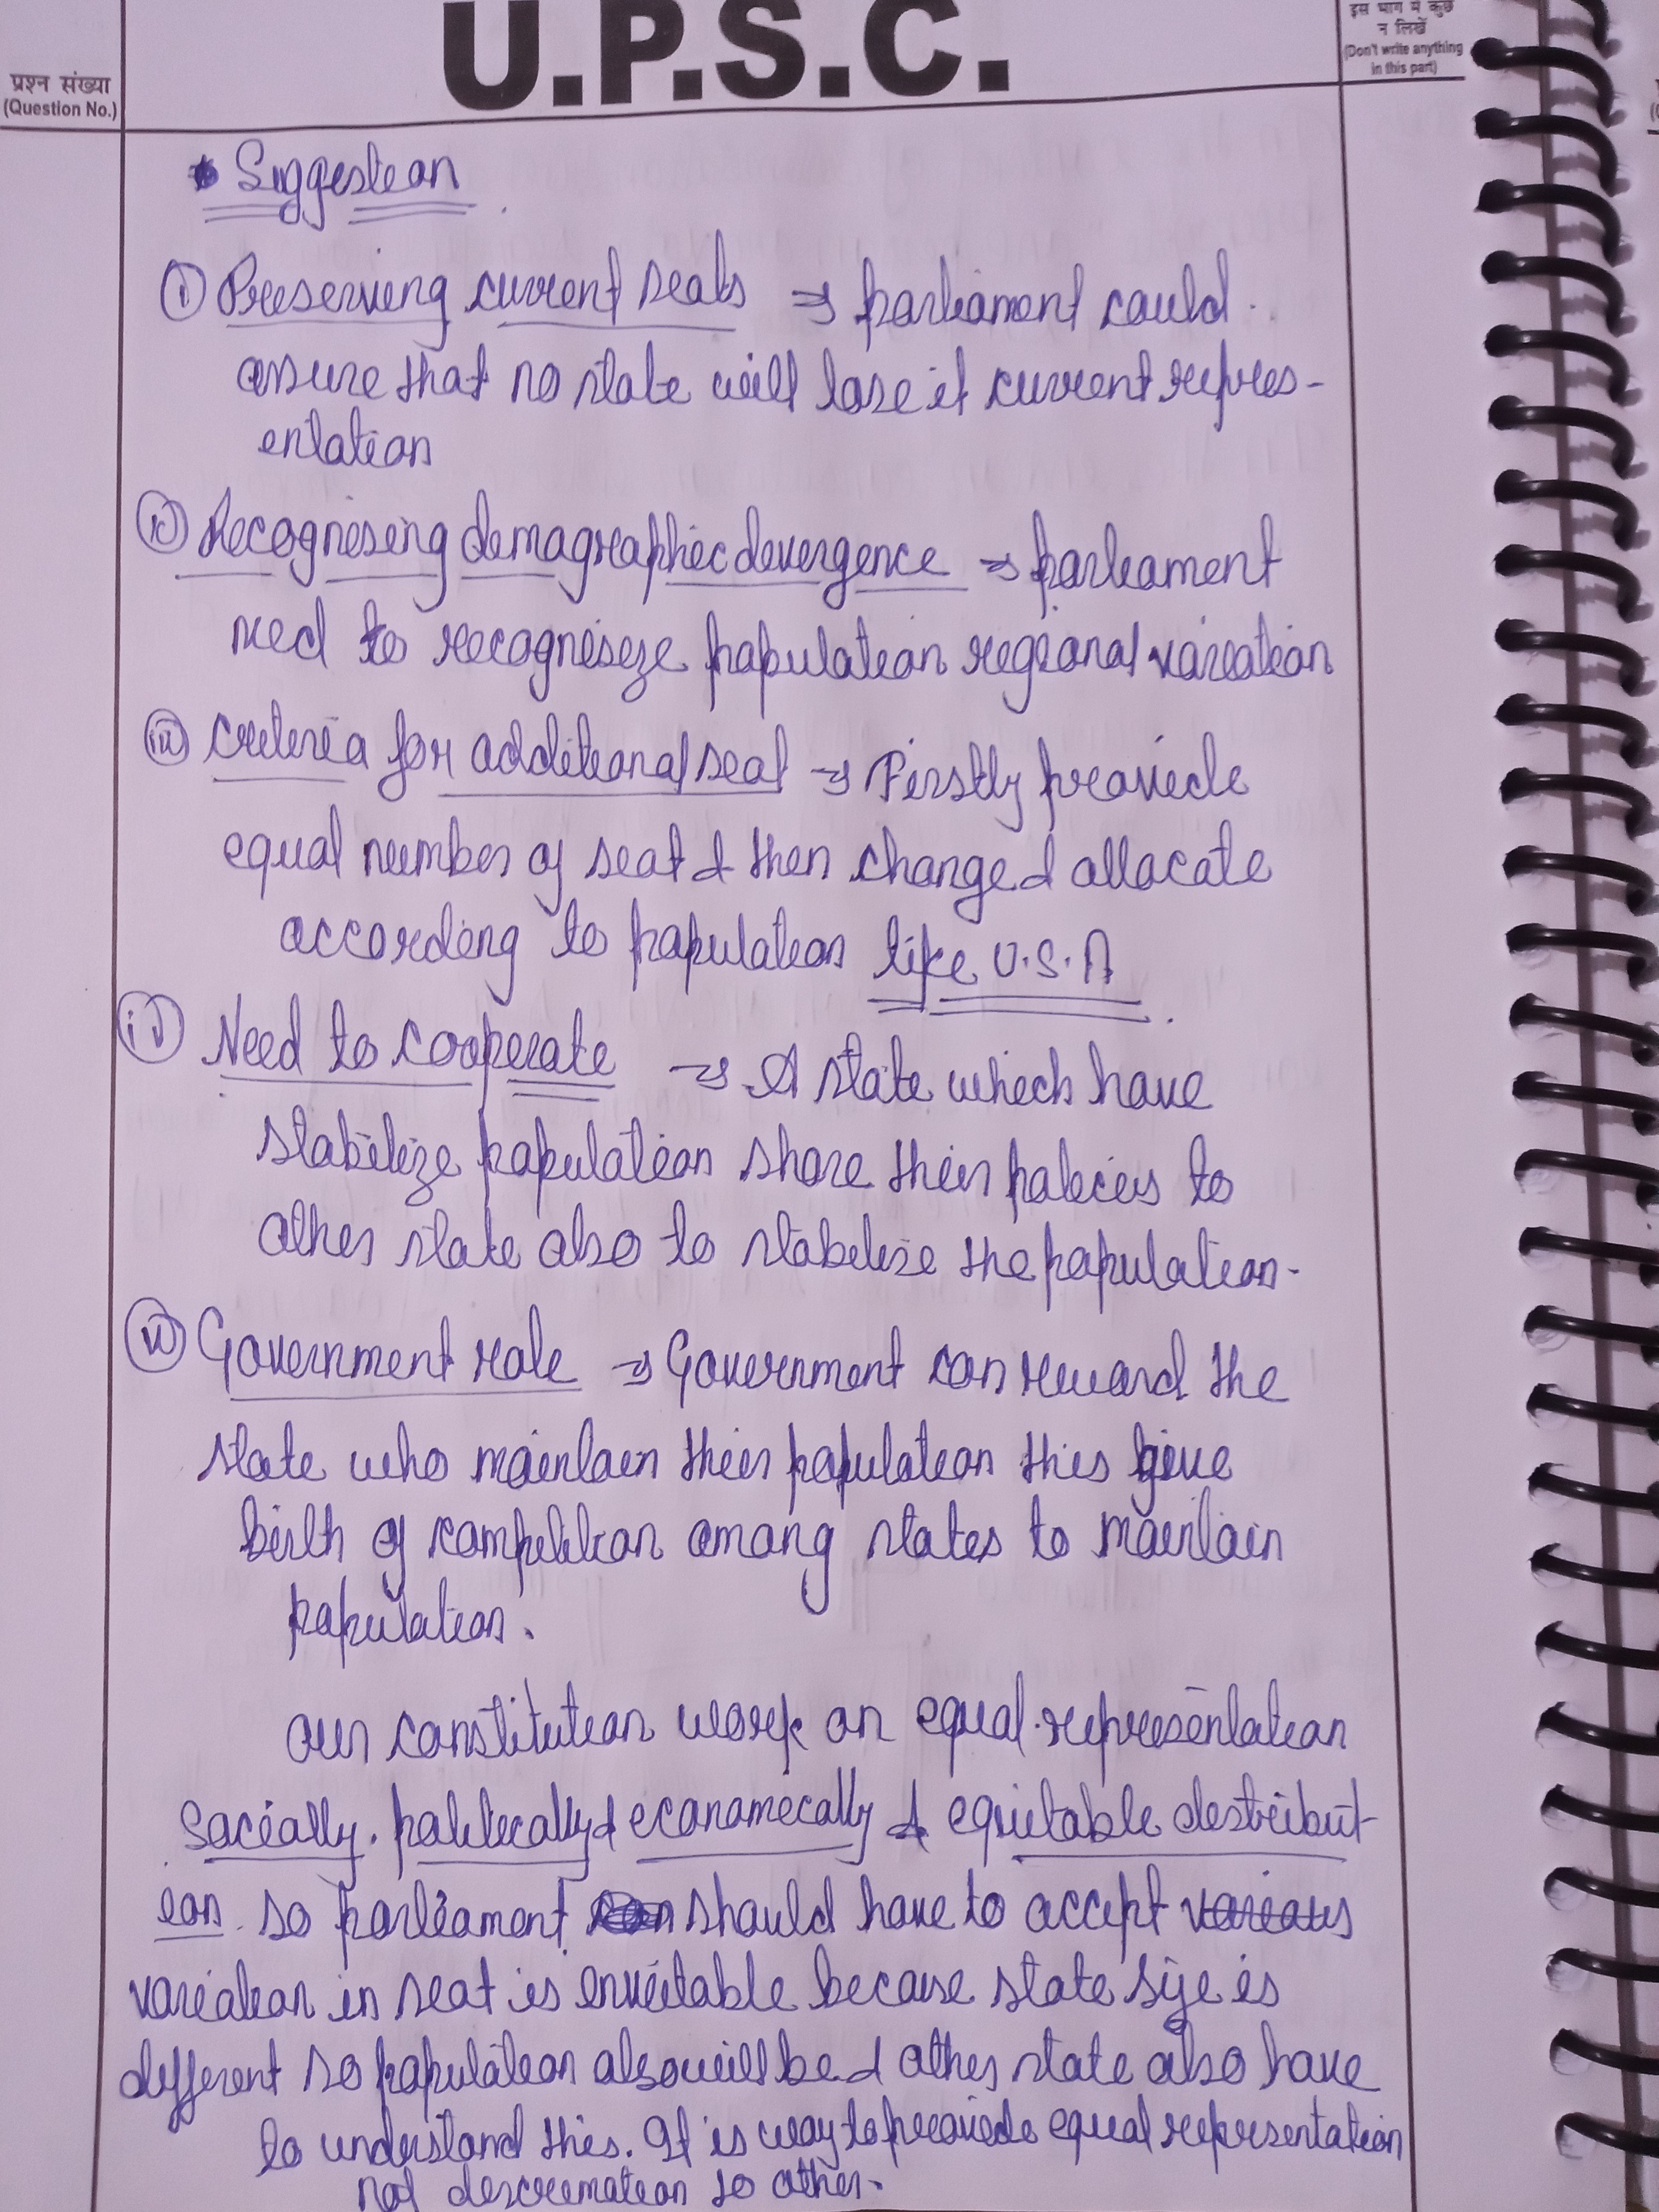 U.P.S.C.
प्रश्न संख्या
(Question No.)
इस भाग में कुछ
न लिखें
(Don't write anything
in this part)
* Suggestion
(i) Preserving current seats → parliament could
assure that no state will lose it current repres-
entation
(ii) Recognising demographic divergence → parliament
need to recognisize population regional variation
(iii) criteria for additional seat → Firstly provide
equal number of seat & then changed allocate
according to population like U.S.A
(iv) Need to cooperate → A state which have
stabilize population share their policies to
other state also to stabilise the population.
(v) Government role → Government can reward the
state who maintain their population this give
birth of competition among states to maintain
population.
our constitution work on equal representation
socially, politically & economically & equitable distribut-
ion. so parliament should have to accept various
variation in seat is inveitable because state size is
different so population also will be & other state also have
to understand this. It is way to provide equal representation
not descrimation to other.